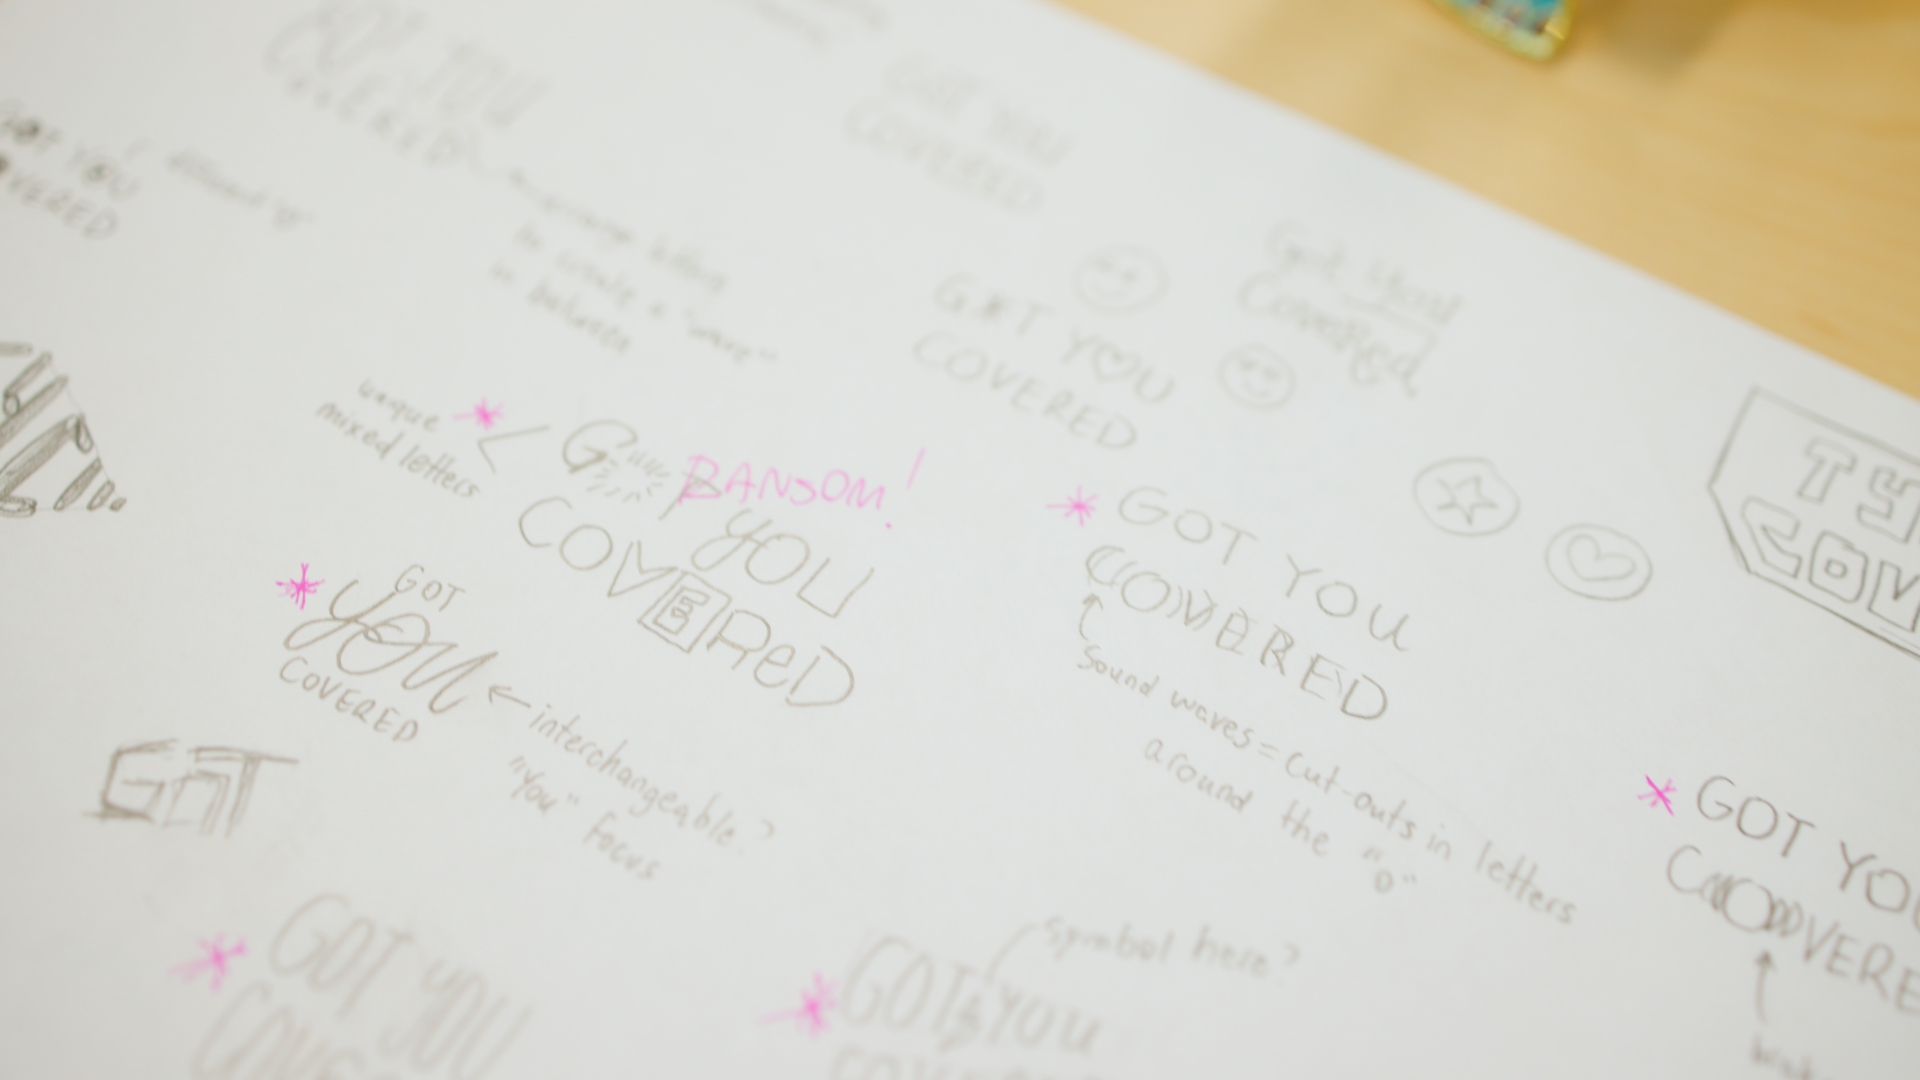 GOT YOU
COVERED
GOT YOU
COVERED
GOT YOU
COVERED
arrange letters
to create a "wave"
in balance
GOT YOU
COVERED
Got you
Covered
unique
mixed letters
G
RANSOM!
YOU
COVEReD
GOT
you
COVERED
interchangeable?
"You" focus
GOT YOU
COVERED
Sound waves = cut-outs in letters
around the "O"
TY
COV
GOT
GOT YOU
COVERE
GOT YOU
COVE
symbol here?
GOT & YOU
COVERED